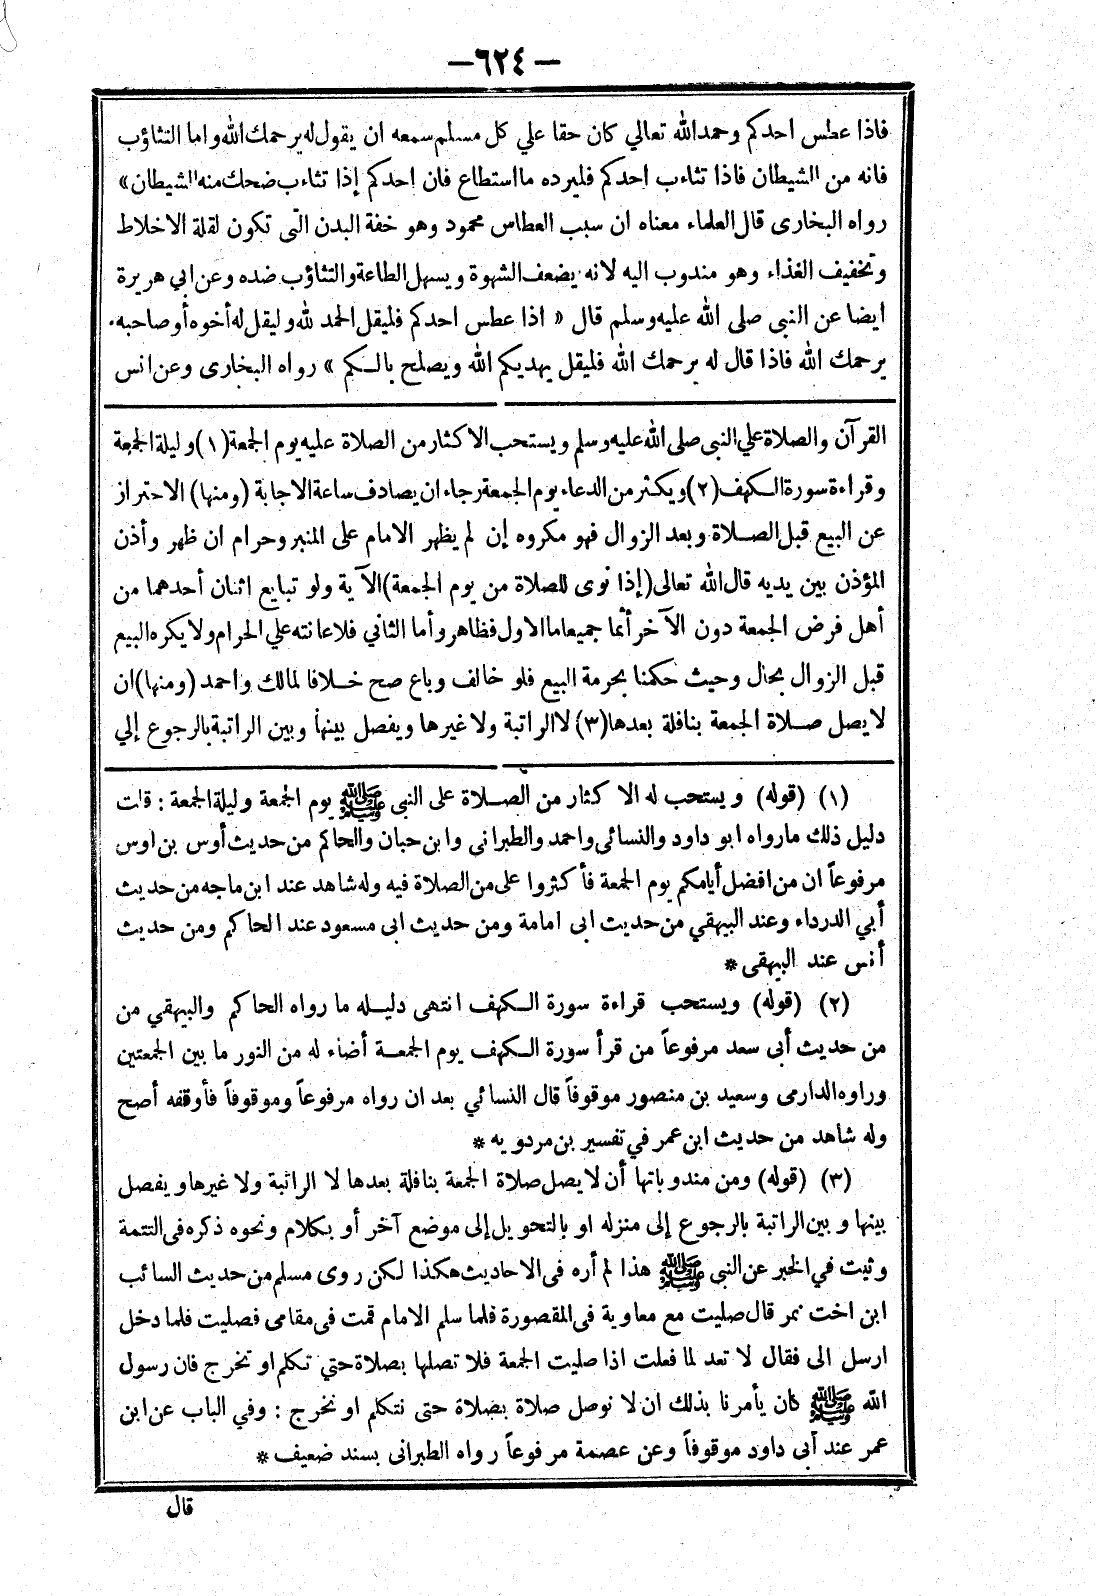 — ٦٢٤ —
فاذا عطس احدكم وحمد الله تعالي كان حقا علي كل مسلم سمعه ان يقول له يرحمك الله واما التثاؤب
فانه من الشيطان فاذا تثاءب احدكم فليرده ما استطاع فان احدكم إذا تثاءب ضحك منه الشيطان»
رواه البخارى قال العلماء معناه ان سبب العطاس محمود وهو خفة البدن التى تكون لقلة الاخلاط
وتخفيف الغذاء وهو مندوب اليه لانه يضعف الشهوة ويسهل الطاعة والتثاؤب ضده وعن ابي هريرة
ايضا عن النبى صلى الله عليه وسلم قال « اذا عطس احدكم فليقل الحمد لله وليقل له أخوه أو صاحبه
يرحمك الله فاذا قال له يرحمك الله فليقل يهديكم الله ويصلح بالكم » رواه البخارى وعن انس
القرآن والصلاة علي النبى صلى الله عليه وسلم ويستحب الاكثار من الصلاة عليه يوم الجمعة (١) وليلة الجمعة
وقراءة سورة الكهف (٢) ويكثر من الدعاء يوم الجمعة رجاء ان يصادف ساعة الاجابة (ومنها) الاحتراز
عن البيع قبل الصلاة وبعد الزوال فهو مكروه إن لم يظهر الامام على المنبر وحرام ان ظهر وأذن
المؤذن بين يديه قال الله تعالى (إذا نوى للصلاة من يوم الجمعة) الآية ولو تبايع اثنان أحدهما من
أهل فرض الجمعة دون الآخر أثما جميعا اما الاول فظاهر وأما الثاني فلاعانته علي الحرام ولا يكره البيع
قبل الزوال بحال وحيث حكمنا بحرمة البيع فلو خالف وباع صح خلافا لمالك واحمد (ومنها) ان
لا يصل صلاة الجمعة بنافلة بعدها (٣) لا الراتبة ولا غيرها ويفصل بينها وبين الراتبة بالرجوع إلي
(١) (قوله) ويستحب له الاكثار من الصلاة على النبى ﷺ يوم الجمعة وليلة الجمعة : قلت
دليل ذلك ما رواه ابو داود والنسائى واحمد والطبراني وابن حبان والحاكم من حديث أوس بن اوس
مرفوعاً ان من افضل أيامكم يوم الجمعة فأكثروا على من الصلاة فيه وله شاهد عند ابن ماجه من حديث
أبي الدرداء وعند البيهقي من حديث ابى امامة ومن حديث ابى مسعود عند الحاكم ومن حديث
أنس عند البيهقى *
(٢) (قوله) ويستحب قراءة سورة الكهف انتهى دليله ما رواه الحاكم والبيهقي من
من حديث أبى سعد مرفوعاً من قرأ سورة الكهف يوم الجمعة أضاء له من النور ما بين الجمعتين
وراوه الدارمى وسعيد بن منصور موقوفاً قال النسائي بعد ان رواه مرفوعاً وموقوفاً فأوقفه أصح
وله شاهد من حديث ابن عمر في تفسير بن مردويه *
(٣) (قوله) ومن مندوباتها أن لا يصل صلاة الجمعة بنافلة بعدها لا الراتبة ولا غيرها ويفصل
بينها وبين الراتبة بالرجوع إلى منزله او بالتحويل إلى موضع آخر أو بكلام ونحوه ذكره فى التتمة
وثبت في الخبر عن النبى ﷺ هذا لم أره فى الاحاديث هكذا لكن روى مسلم من حديث السائب
ابن اخت نمر قال صليت مع معاوية فى المقصورة فلما سلم الامام قمت فى مقامى فصليت فلما دخل
ارسل الى فقال لا تعد لما فعلت اذا صليت الجمعة فلا تصلها بصلاة حتي تكلم او تخرج فان رسول
الله ﷺ كان يأمرنا بذلك ان لا نوصل صلاة بصلاة حتى نتكلم او نخرج : وفي الباب عن ابن
عمر عند أبى داود موقوفاً وعن عصمة مرفوعاً رواه الطبرانى بسند ضعيف *
قال